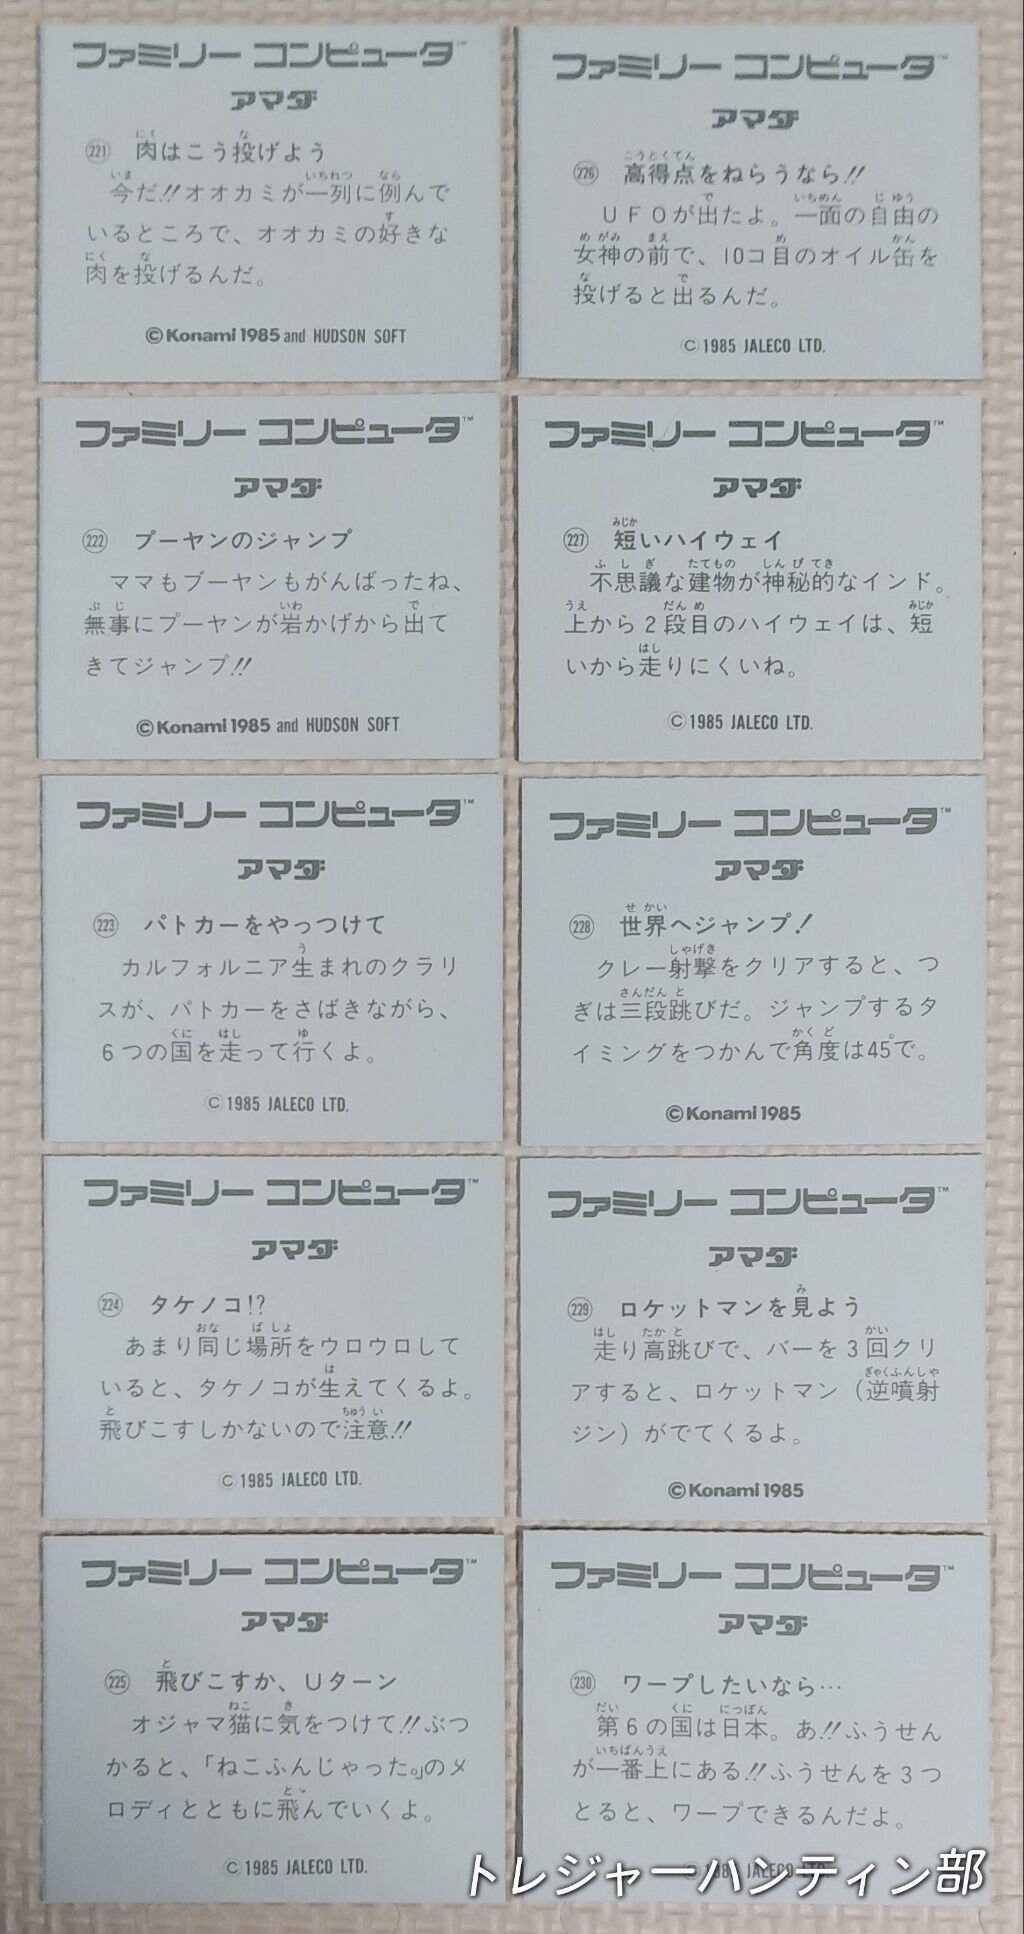 ファミリー コンピュータ™
アマダ
221 肉はこう投げよう
今だ!!オオカミが一列に例んで
いるところで、オオカミの好きな
肉を投げるんだ。
©Konami 1985 and HUDSON SOFT
ファミリー コンピュータ™
アマダ
222 プーヤンのジャンプ
ママもブーヤンもがんばったね、
無事にプーヤンが岩かげから出て
きてジャンプ!!
©Konami 1985 and HUDSON SOFT
ファミリー コンピュータ™
アマダ
223 パトカーをやっつけて
カルフォルニア生まれのクラリ
スが、パトカーをさばきながら、
6つの国を走って行くよ。
©1985 JALECO LTD.
ファミリー コンピュータ™
アマダ
224 タケノコ!?
あまり同じ場所をウロウロして
いると、タケノコが生えてくるよ。
飛びこすしかないので注意!!
©1985 JALECO LTD.
ファミリー コンピュータ™
アマダ
225 飛びこすか、Uターン
オジャマ猫に気をつけて!!ぶつ
かると、「ねこふんじゃった。」のメ
ロディとともに飛んでいくよ。
©1985 JALECO LTD.
ファミリー コンピュータ™
アマダ
226 高得点をねらうなら!!
UFOが出たよ。一面の自由の
女神の前で、10コ目のオイル缶を
投げると出るんだ。
©1985 JALECO LTD.
ファミリー コンピュータ™
アマダ
227 短いハイウェイ
不思議な建物が神秘的なインド。
上から2段目のハイウェイは、短
いから走りにくいね。
©1985 JALECO LTD.
ファミリー コンピュータ™
アマダ
228 世界へジャンプ!
クレー射撃をクリアすると、つ
ぎは三段跳びだ。ジャンプするタ
イミングをつかんで角度は45°で。
©Konami 1985
ファミリー コンピュータ™
アマダ
229 ロケットマンを見よう
走り高跳びで、バーを3回クリ
アすると、ロケットマン(逆噴射
ジン)がでてくるよ。
©Konami 1985
ファミリー コンピュータ™
アマダ
230 ワープしたいなら…
第6の国は日本。あ!!ふうせん
が一番上にある!!ふうせんを3つ
とると、ワープできるんだよ。
©1985 JALECO LTD.
トレジャーハンティン部